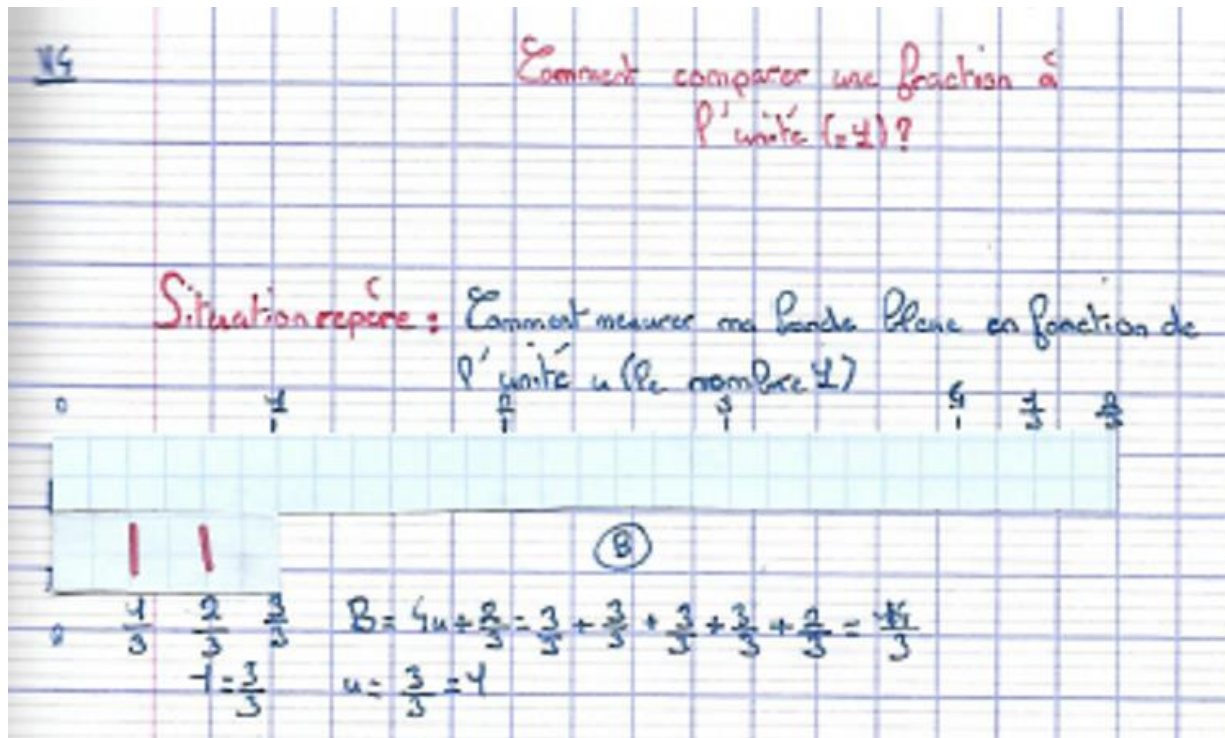 N4
Comment comparer une fraction à
l'unité (=1)?
Situation repère : Comment mesurer ma bande bleue en fonction de
l'unité u (le nombre 1)
0 1 2 3 4 1/3 2/3
B
0 1/3 2/3 3/3 B = 4u + 2/3 = 3/3 + 3/3 + 3/3 + 3/3 + 2/3 = 14/3
1 = 3/3 u = 3/3 = 1